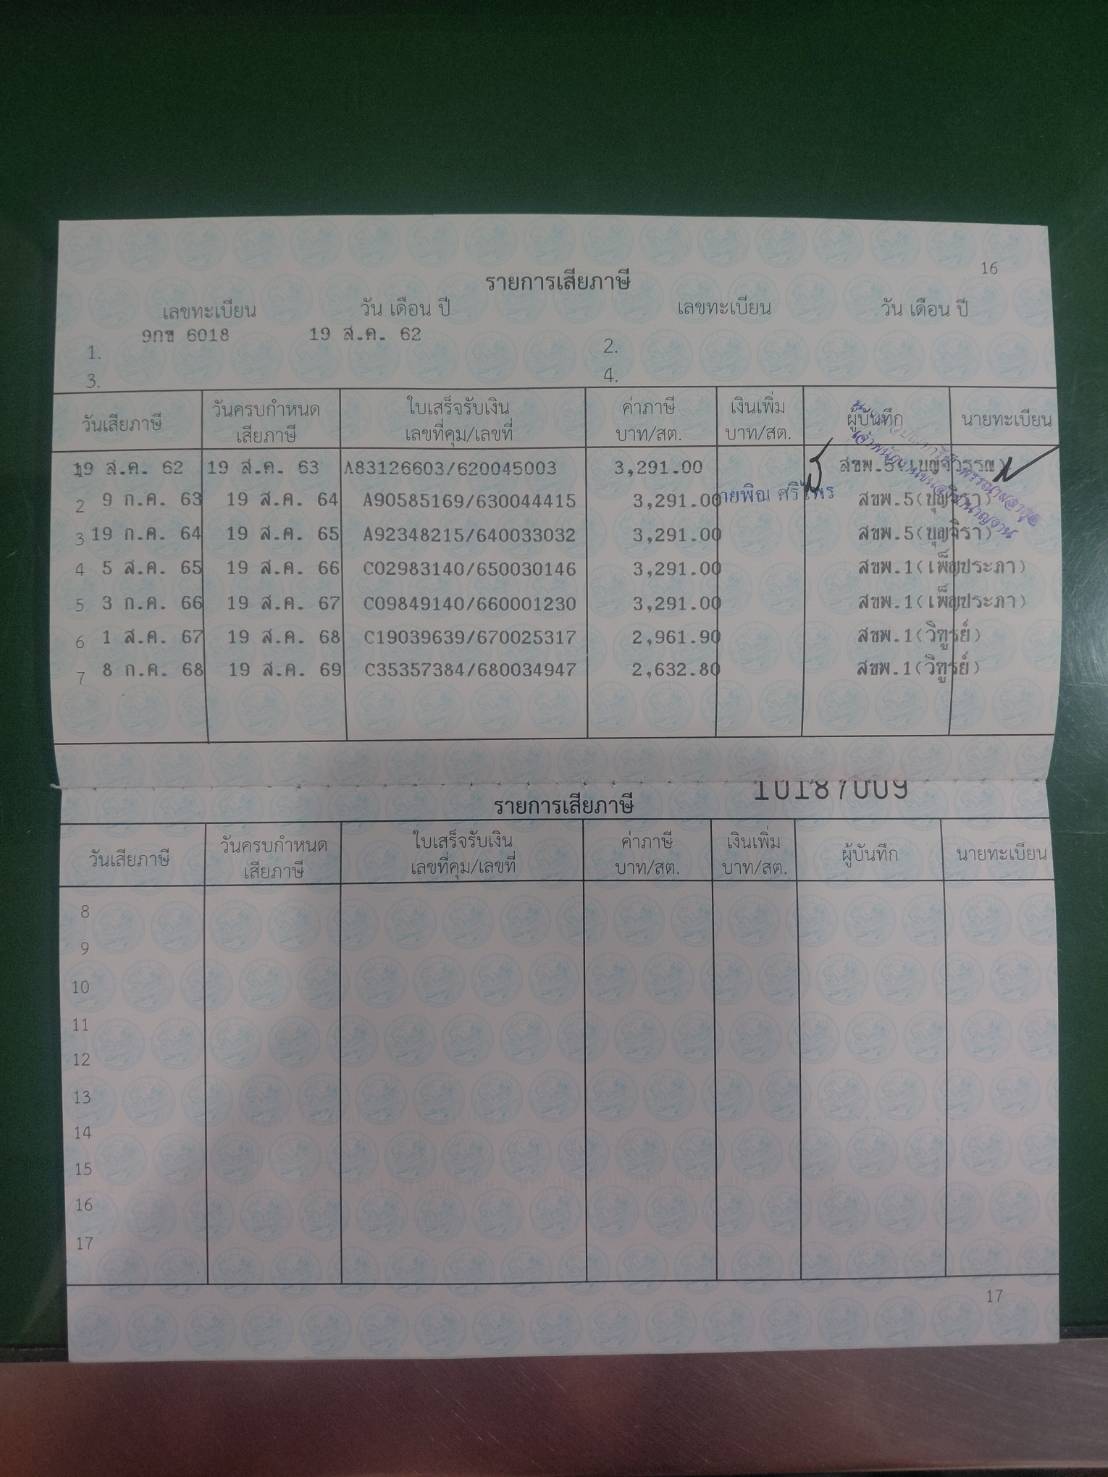 16
รายการเสียภาษี
เลขทะเบียน วัน เดือน ปี เลขทะเบียน วัน เดือน ปี
9กข 6018 19 ส.ค. 62
1. 2.
3. 4.
วันเสียภาษี วันครบกำหนดเสียภาษี ใบเสร็จรับเงิน เลขที่คุม/เลขที่ ค่าภาษี บาท/สต. เงินเพิ่ม บาท/สต. ผู้บันทึก นายทะเบียน
1 19 ส.ค. 62 19 ส.ค. 63 A83126603/620045003 3,291.00 สขพ.5(เบญจวรรณ)
2 9 ก.ค. 63 19 ส.ค. 64 A90585169/630044415 3,291.00 สขพ.5(บุญจิรา)
3 19 ก.ค. 64 19 ส.ค. 65 A92348215/640033032 3,291.00 สขพ.5(บุญจิรา)
4 5 ส.ค. 65 19 ส.ค. 66 C02983140/650030146 3,291.00 สขพ.1(เพ็ญประภา)
5 3 ก.ค. 66 19 ส.ค. 67 C09849140/660001230 3,291.00 สขพ.1(เพ็ญประภา)
6 1 ส.ค. 67 19 ส.ค. 68 C19039639/670025317 2,961.90 สขพ.1(วิฑูรย์)
7 8 ก.ค. 68 19 ส.ค. 69 C35357384/680034947 2,632.80 สขพ.1(วิฑูรย์)
10187009
รายการเสียภาษี
วันเสียภาษี วันครบกำหนดเสียภาษี ใบเสร็จรับเงิน เลขที่คุม/เลขที่ ค่าภาษี บาท/สต. เงินเพิ่ม บาท/สต. ผู้บันทึก นายทะเบียน
8
9
10
11
12
13
14
15
16
17
17